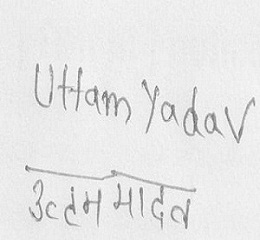 Uttam Yadav
उत्तम यादव